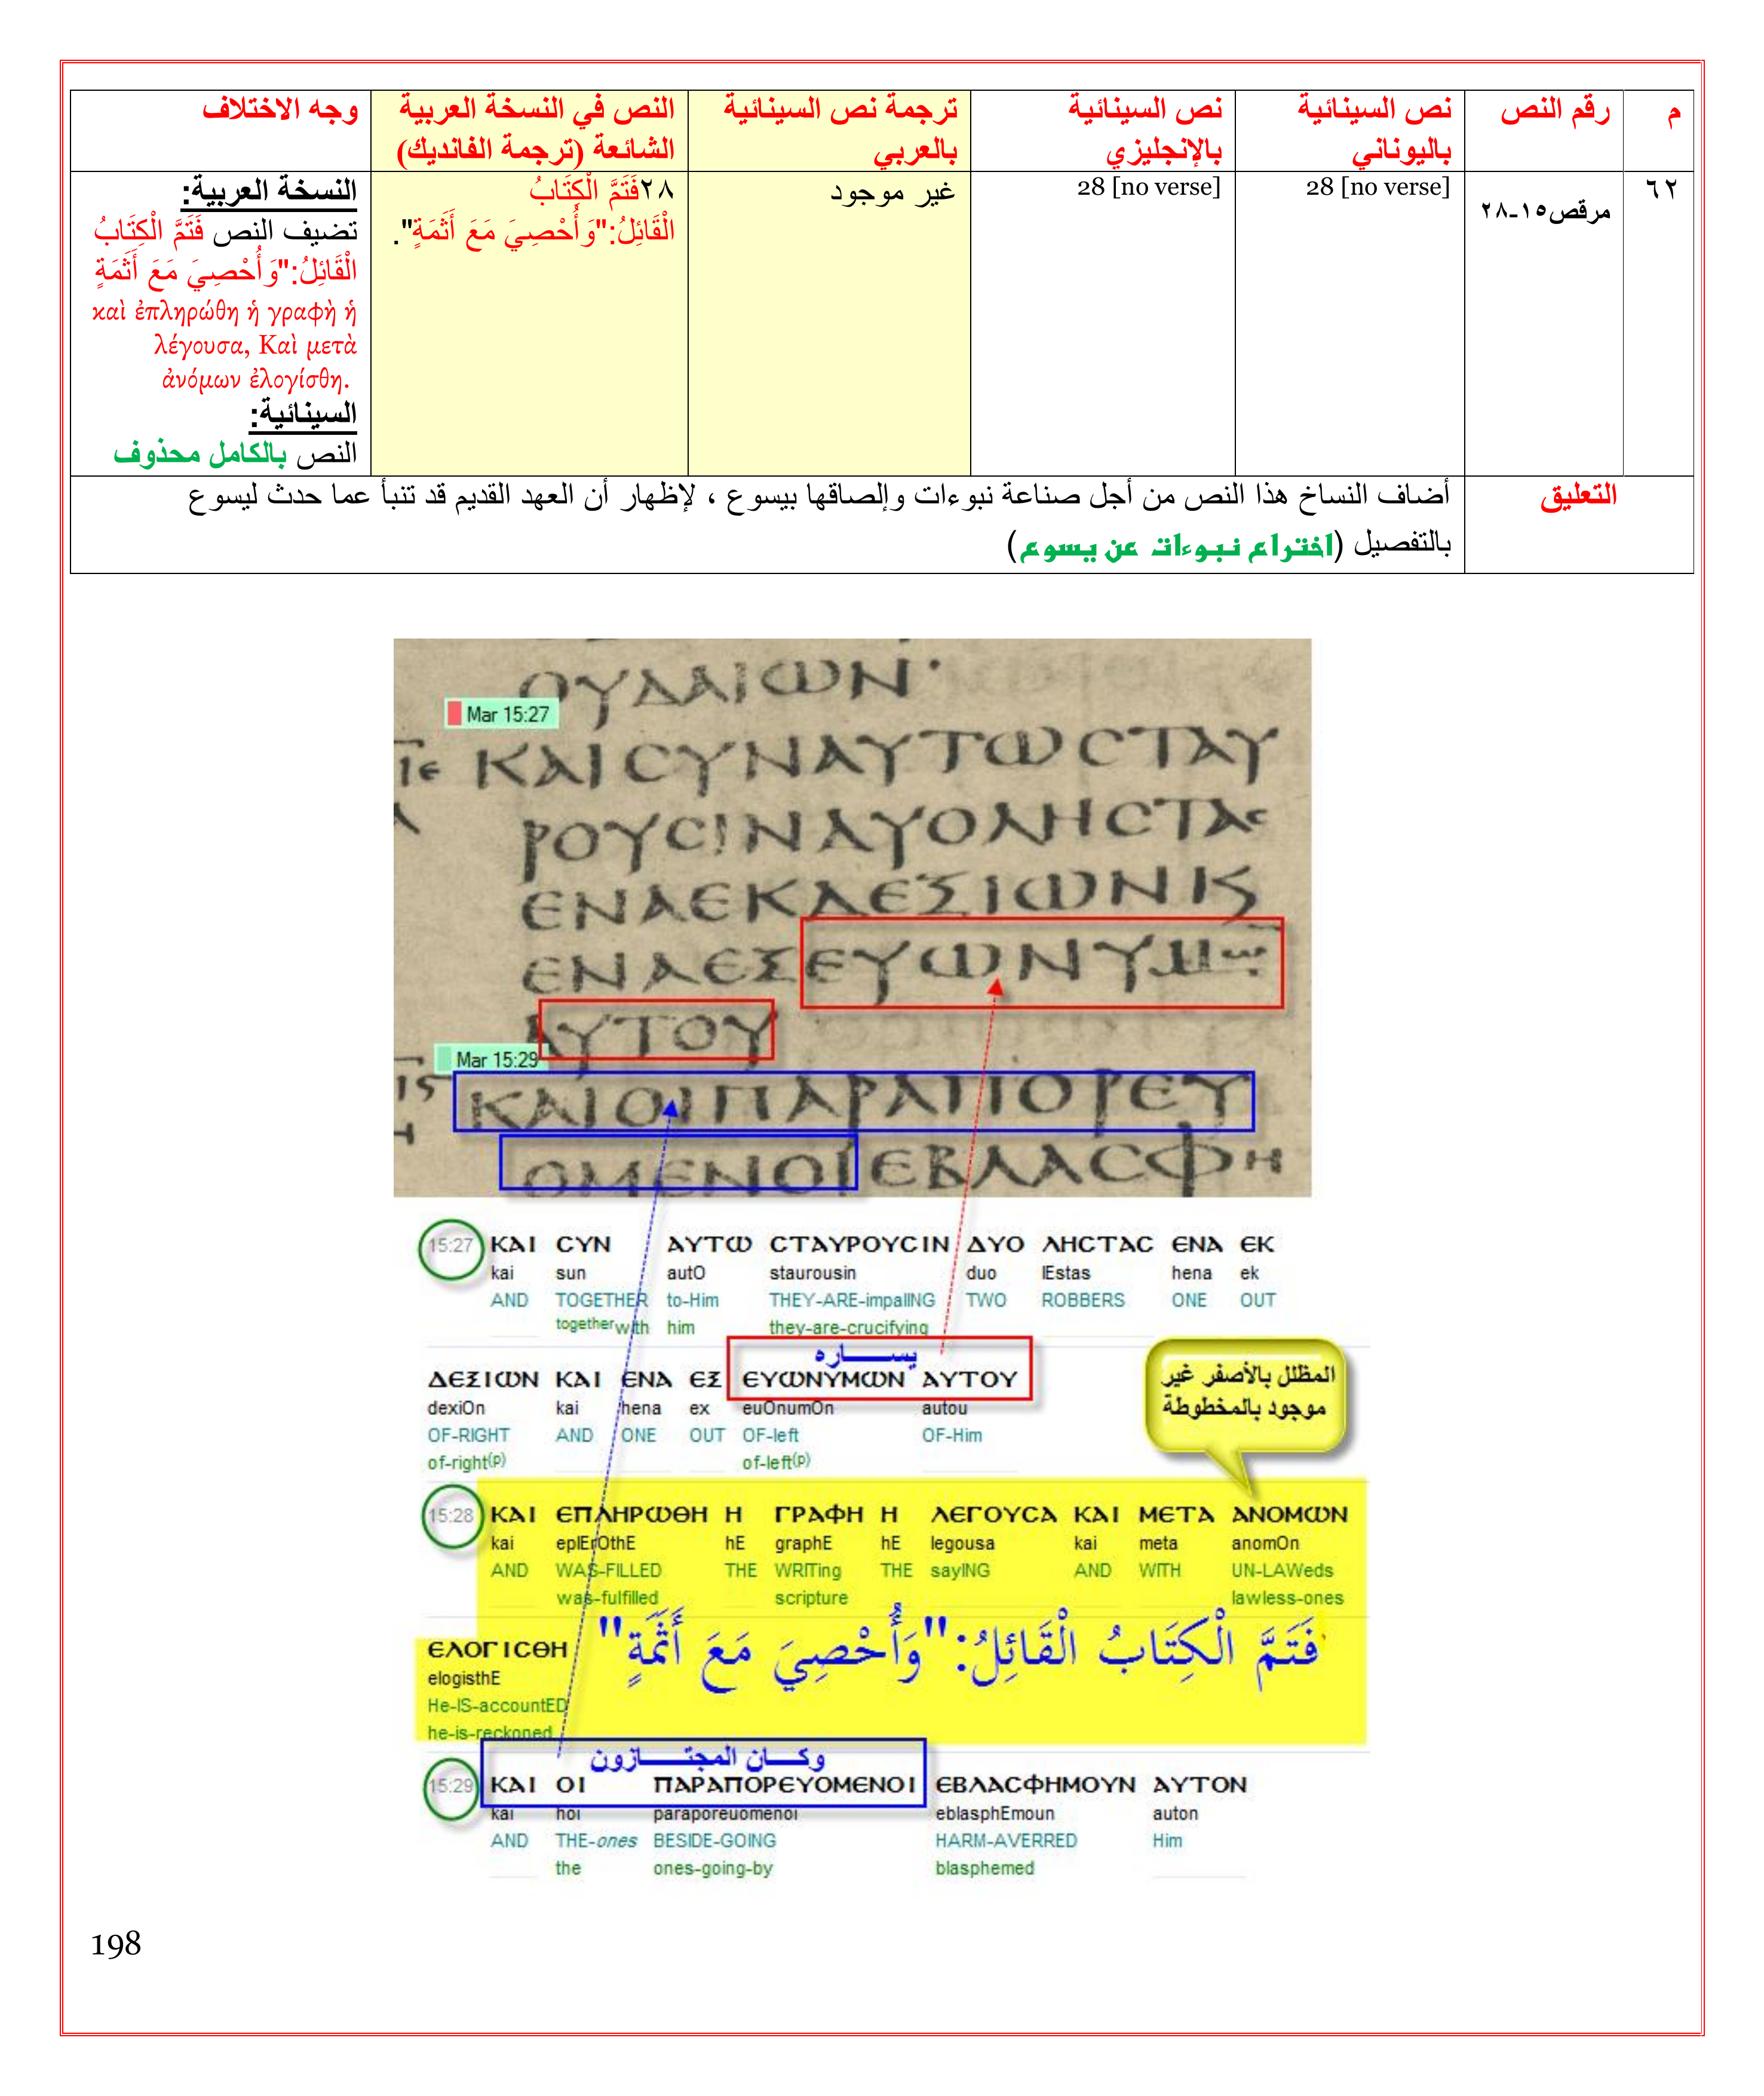 م رقم النص نص السينائية باليوناني نص السينائية بالإنجليزي ترجمة نص السينائية بالعربي النص في النسخة العربية الشائعة (ترجمة الفانديك) وجه الاختلاف
٦٢
مرقص١٥-٢٨
28 [no verse]
28 [no verse]
غير موجود
٢٨فَتَمَّ الْكِتَابُ
الْقَائِلُ:"وَأُحْصِيَ مَعَ أَثَمَةٍ".
النسخة العربية:
تضيف النص فَتَمَّ الْكِتَابُ
الْقَائِلُ:"وَأُحْصِيَ مَعَ أَثَمَةٍ
καὶ ἐπληρώθη ἡ γραφὴ ἡ
λέγουσα, Καὶ μετὰ
ἀνόμων ἐλογίσθη.
السينائية:
النص بالكامل محذوف
التعليق
أضاف النساخ هذا النص من أجل صناعة نبوءات وإلصاقها بيسوع ، لإظهار أن العهد القديم قد تنبأ عما حدث ليسوع
بالتفصيل (اختراع نبوءات عن يسوع)
ΟΥΔΑΙΩΝ·
Mar 15:27
ΚΑΙϹΥΝΑΥΤΩϹΤΑΥ
ΡΟΥϹΙΝΔΥΟΛΗϹΤΑϹ
ΕΝΑΕΚΔΕΞΙΩΝΚ
ΕΝΑΕΞΕΥΩΝΥΜ
ΑΥΤΟΥ
Mar 15:29
ΚΑΙΟΙΠΑΡΑΠΟΡΕΥ
ΟΜΕΝΟΙΕΒΛΑϹΦΗ
15:27 ΚΑΙ ϹΥΝ ΑΥΤΩ ϹΤΑΥΡΟΥϹΙΝ ΔΥΟ ΛΗϹΤΑϹ ΕΝΑ ΕΚ
kai sun autO staurousin duo lEstas hena ek
AND TOGETHER to-Him THEY-ARE-impalING TWO ROBBERS ONE OUT
together with him they-are-crucifying
يساره
ΔΕΞΙΩΝ ΚΑΙ ΕΝΑ ΕΞ ΕΥΩΝΥΜΩΝ ΑΥΤΟΥ
dexiOn kai hena ex euOnumOn autou
OF-RIGHT AND ONE OUT OF-left OF-Him
of-right(p) of-left(p)
المظلل بالأصفر غير
موجود بالمخطوطة
15:28 ΚΑΙ ΕΠΛΗΡΩΘΗ Η ΓΡΑΦΗ Η ΛΕΓΟΥϹΑ ΚΑΙ ΜΕΤΑ ΑΝΟΜΩΝ
kai eplErOthE hE graphE hE legousa kai meta anomOn
AND WAS-FILLED THE WRITing THE sayING AND WITH UN-LAWeds
was-fulfilled scripture lawless-ones
فَتَمَّ الْكِتَابُ الْقَائِلُ:"وَأُحْصِيَ مَعَ أَثَمَةٍ"
ΕΛΟΓΙϹΘΗ
elogisthE
He-IS-accountED
he-is-reckoned
وكان المجتازون
15:29 ΚΑΙ ΟΙ ΠΑΡΑΠΟΡΕΥΟΜΕΝΟΙ ΕΒΛΑϹΦΗΜΟΥΝ ΑΥΤΟΝ
kai hoi paraporeuomenoi eblasphEmoun auton
AND THE-ones BESIDE-GOING HARM-AVERRED Him
the ones-going-by blasphemed
198